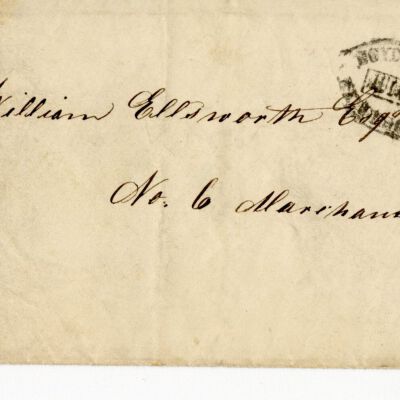 BOYD
William Ellsworth Esqr
No. 6 Marchan